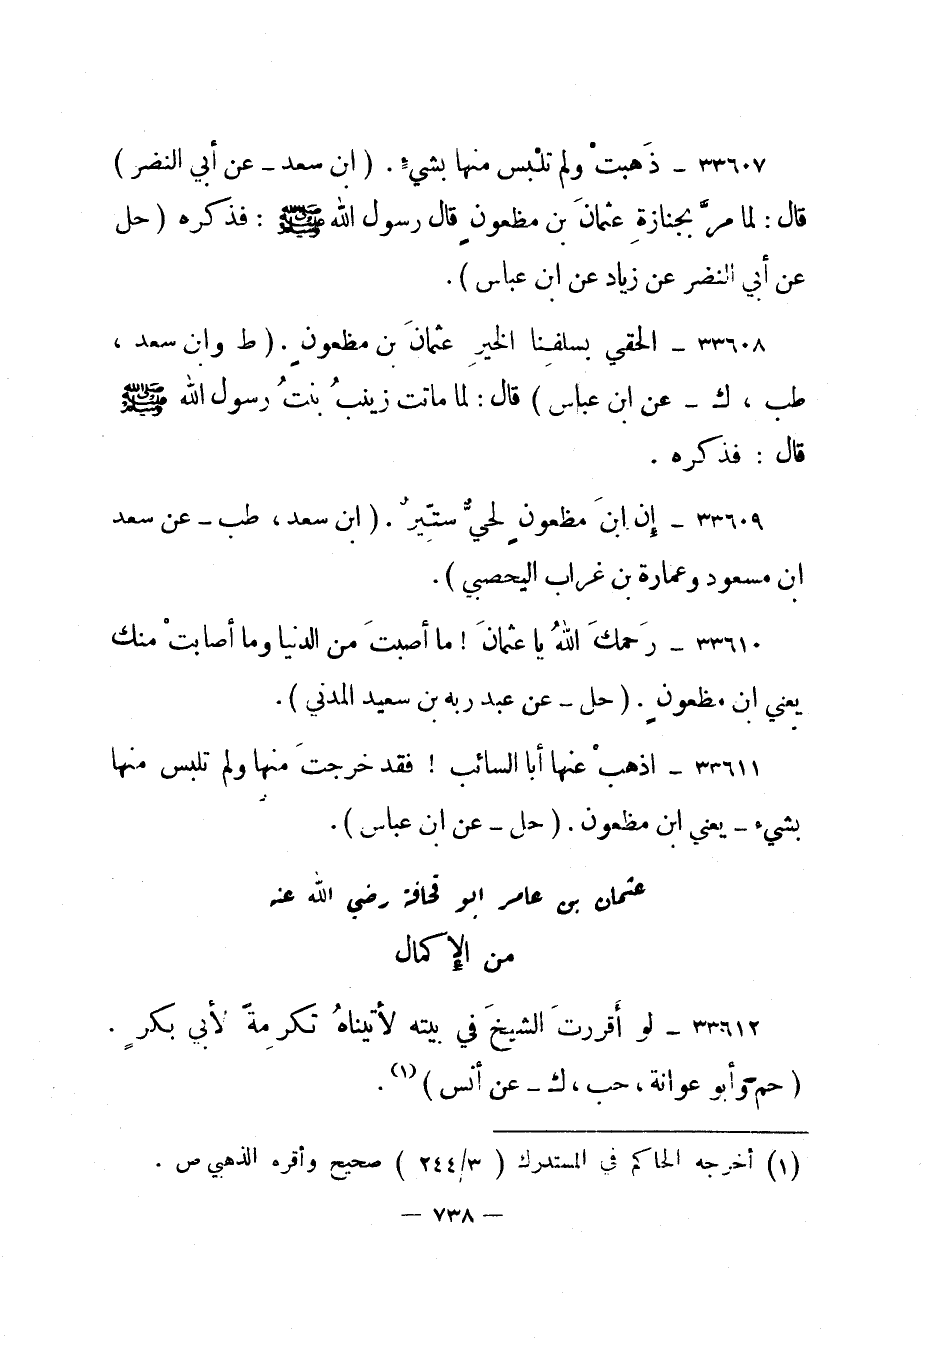 ٣٣٦٠٧ ـ ذَهبتْ ولم تلْبس منها بشيءٍ . ( ابن سعد ـ عن أبي النضر )
قال : لما مرَّ بجنازةِ عثمانَ بن مظعونٍ قال رسول الله ﷺ : فذكره ( حل
عن أبي النضر عن زياد عن ابن عباس ) .
٣٣٦٠٨ ـ الحقي بسلفِنا الخيرِ عثمانَ بن مظعونٍ . ( ط وابن سعد ،
طب ، ك ـ عن ابن عباس ) قال : لما ماتت زينبُ بنتُ رسول الله ﷺ
قال : فذكره .
٣٣٦٠٩ ـ إن ابنَ مظعونٍ لحيٌّ ستِّيرٌ . ( ابن سعد ، طب ـ عن سعد
ابن مسعود وعمارة بن غراب اليحصبي ) .
٣٣٦١٠ ـ رَحمكَ اللهُ يا عثمانَ ! ما أصبتَ من الدنيا وما أصابتْ منك
يعني ابن مظعونٍ . ( حل ـ عن عبد ربه بن سعيد المدني ) .
٣٣٦١١ ـ اذهبْ عنها أبا السائب ! فقد خرجتَ منها ولم تلبس منها
بشيء ـ يعني ابن مظعون . ( حل ـ عن ابن عباس ) .
عثمان بن عامر ابو قحافة رضي الله عنه
من الإكمال
٣٣٦١٢ ـ لو أَقررتَ الشيخَ في بيته لأتيناهُ تكرِمةً لأبي بكرٍ .
( حم وأبو عوانة ، حب ، ك ـ عن أنس ) (١) .
(١) أخرجه الحاكم في المستدرك ( ٣/٢٤٤ ) صحيح وأقره الذهبي ص .
— ٧٣٨ —